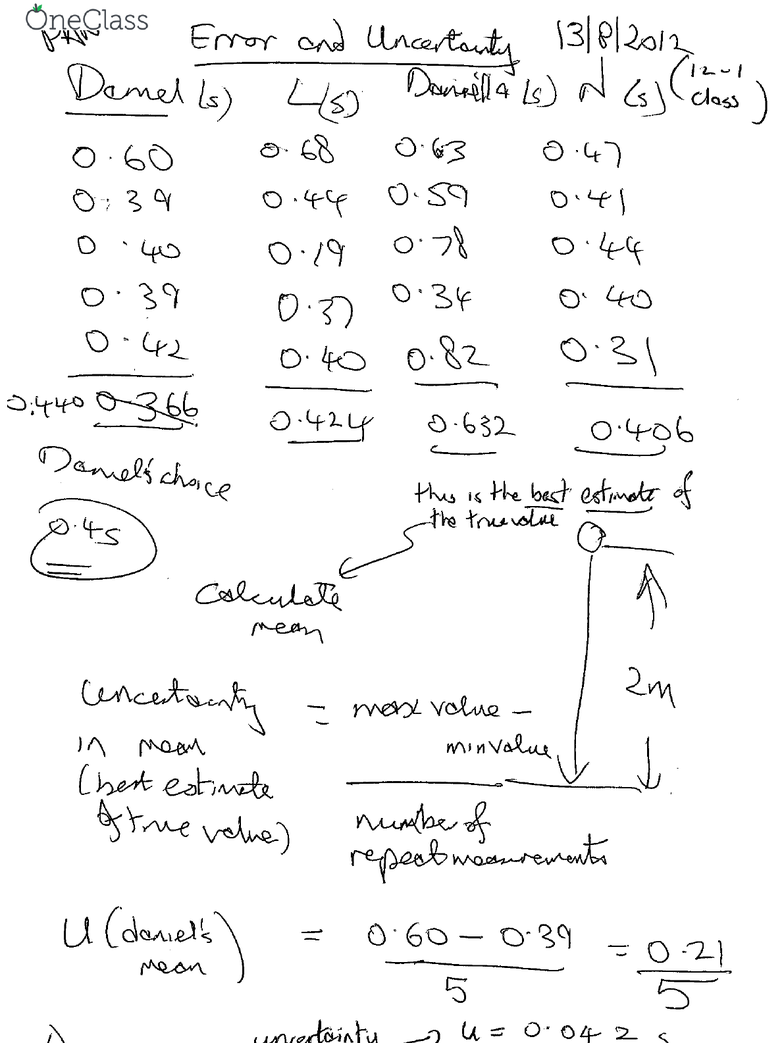 OneClass
Error and Uncertainty 13/8/2012
Daniel (s) L(s) Daniella (s) N (s) (12-1 class)
0.60 0.68 0.63 0.47
0.39 0.44 0.59 0.41
0.40 0.19 0.78 0.44
0.39 0.37 0.34 0.40
0.42 0.40 0.82 0.31
0.440 0.366 0.424 0.632 0.406
Daniel's choice
0.4s
this is the best estimate of
the true value
Calculate
mean
2m
Uncertainty = max value -
in mean min value
(best estimate
of true value) number of
repeat measurements
U (daniel's mean) = 0.60 - 0.39 = 0.21
5 5
uncertainty → u = 0.042 s